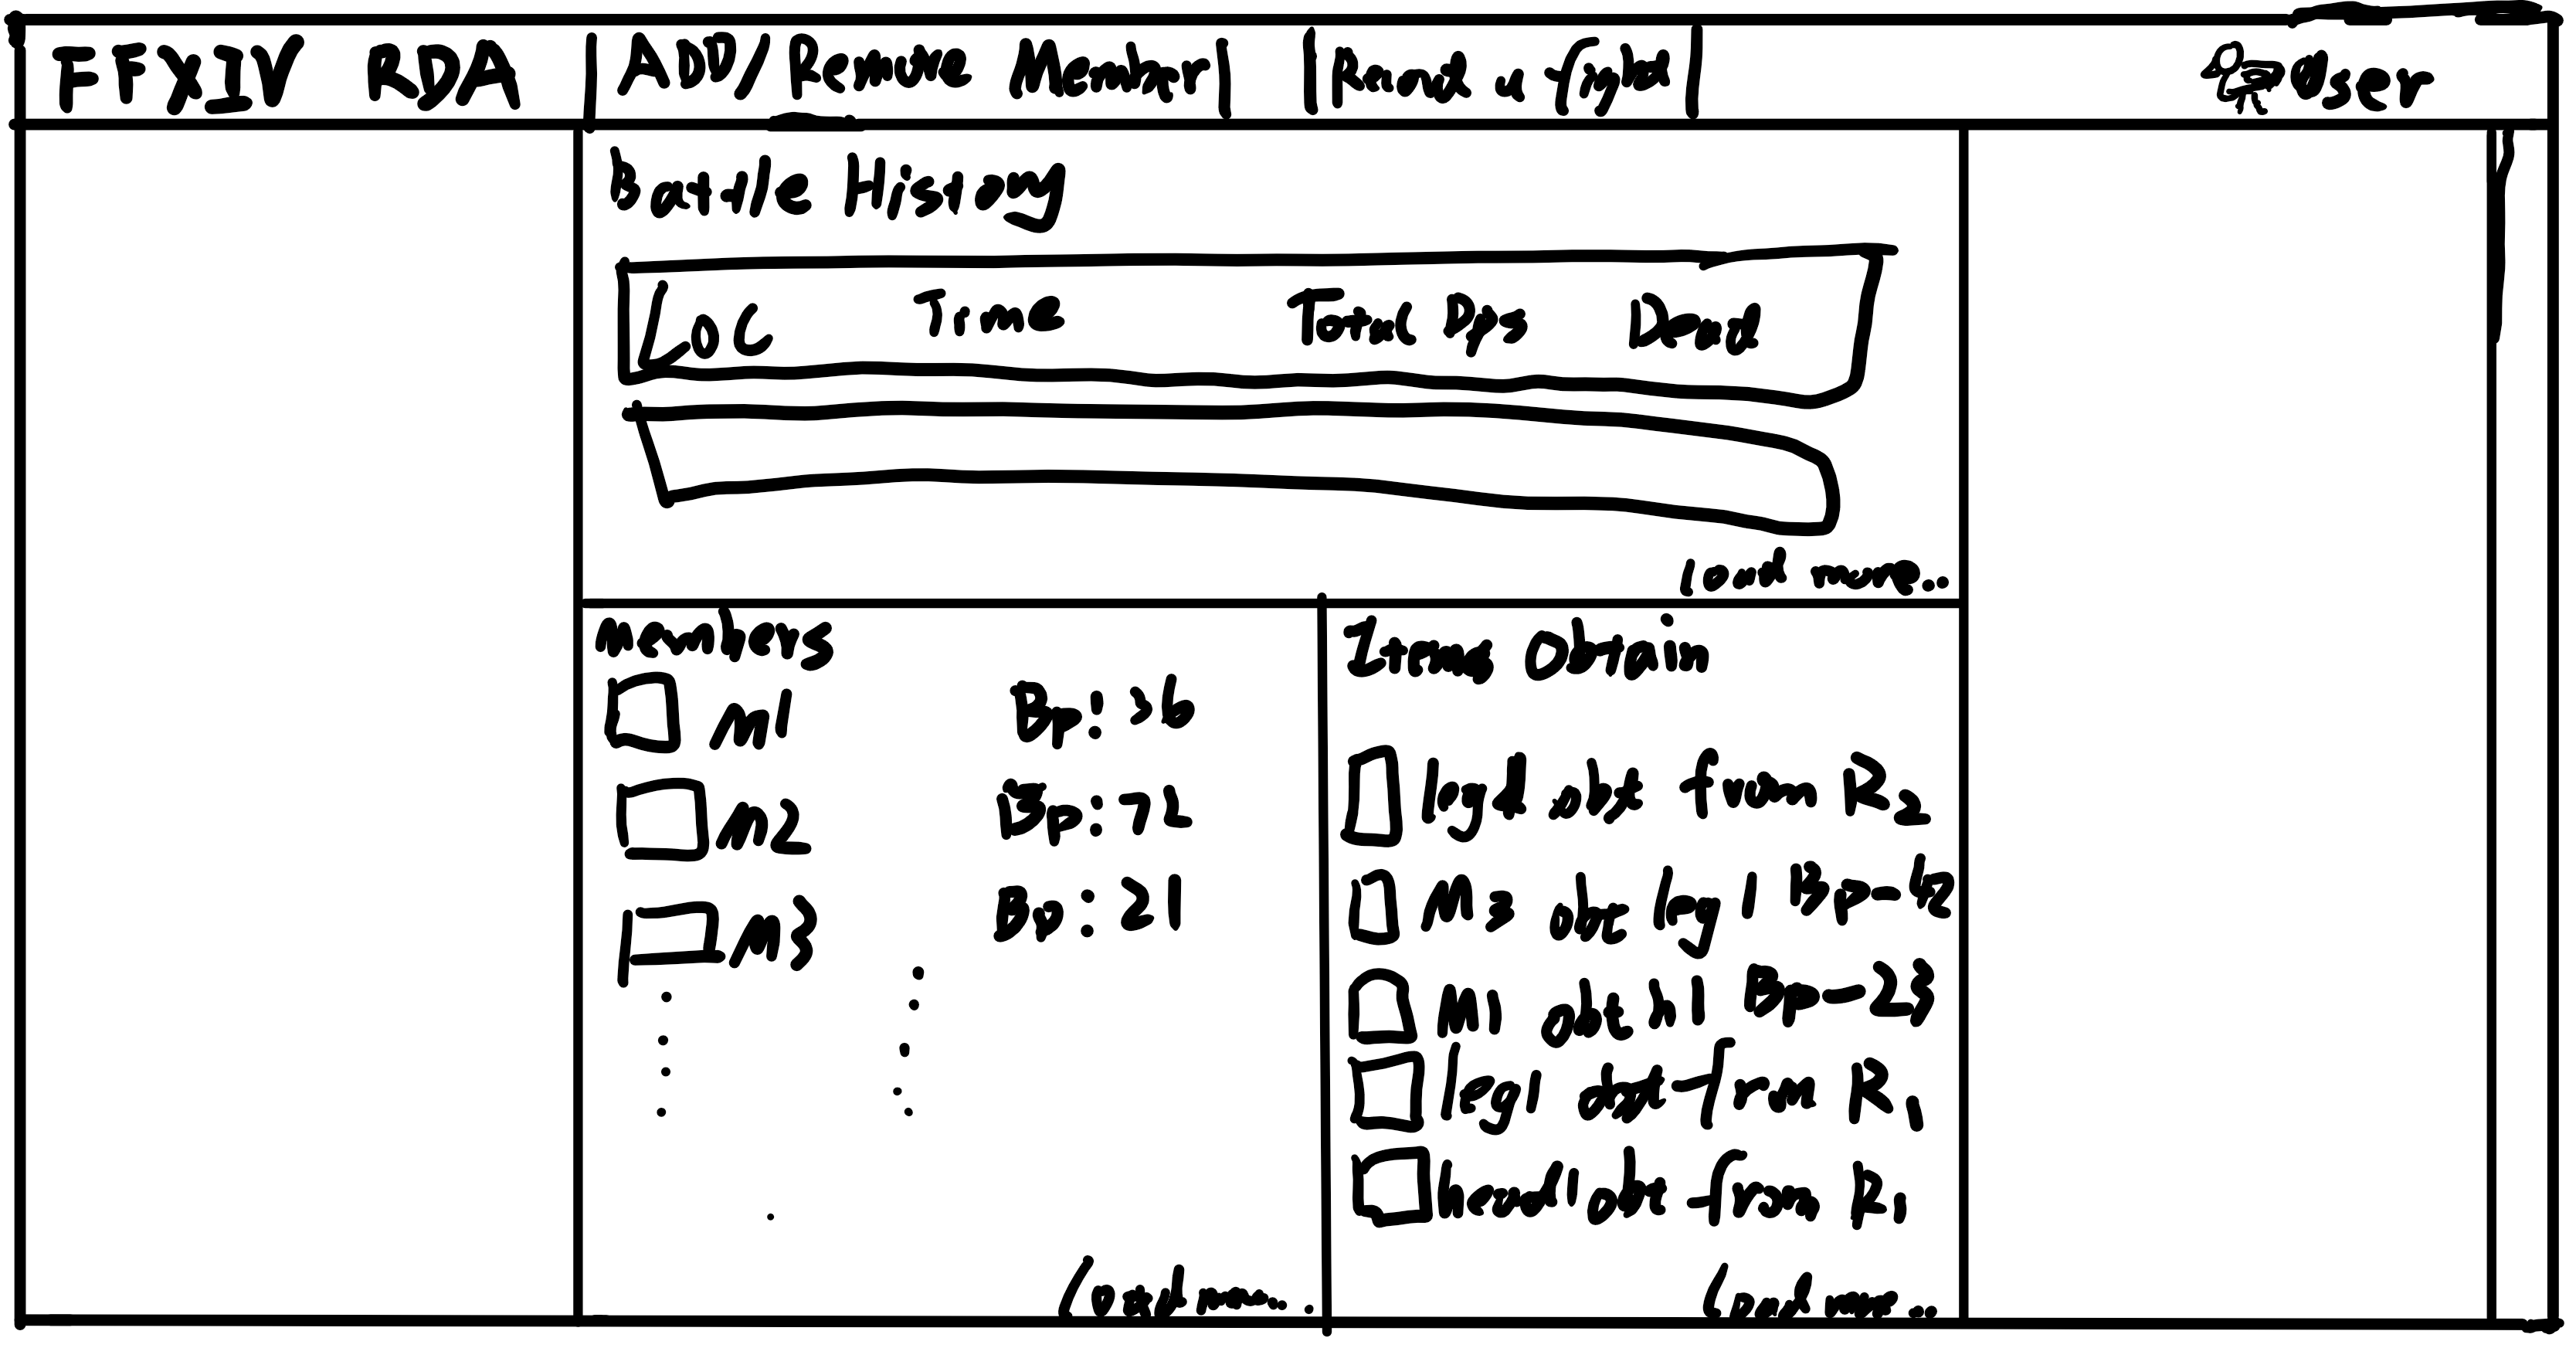 FFXIV RDA
ADD/Remove Member
Record a fight
User
Battle History
Loc Time Total Dps Dead
load more..
Members
M1 Bp: 36
M2 Bp: 72
M3 Bp: 21
Load more...
Items Obtain
leg1 obt from R2
M3 obt leg1 Bp-42
M1 obt h1 Bp-23
leg1 obt from R1
head1 obt from R1
Load more..